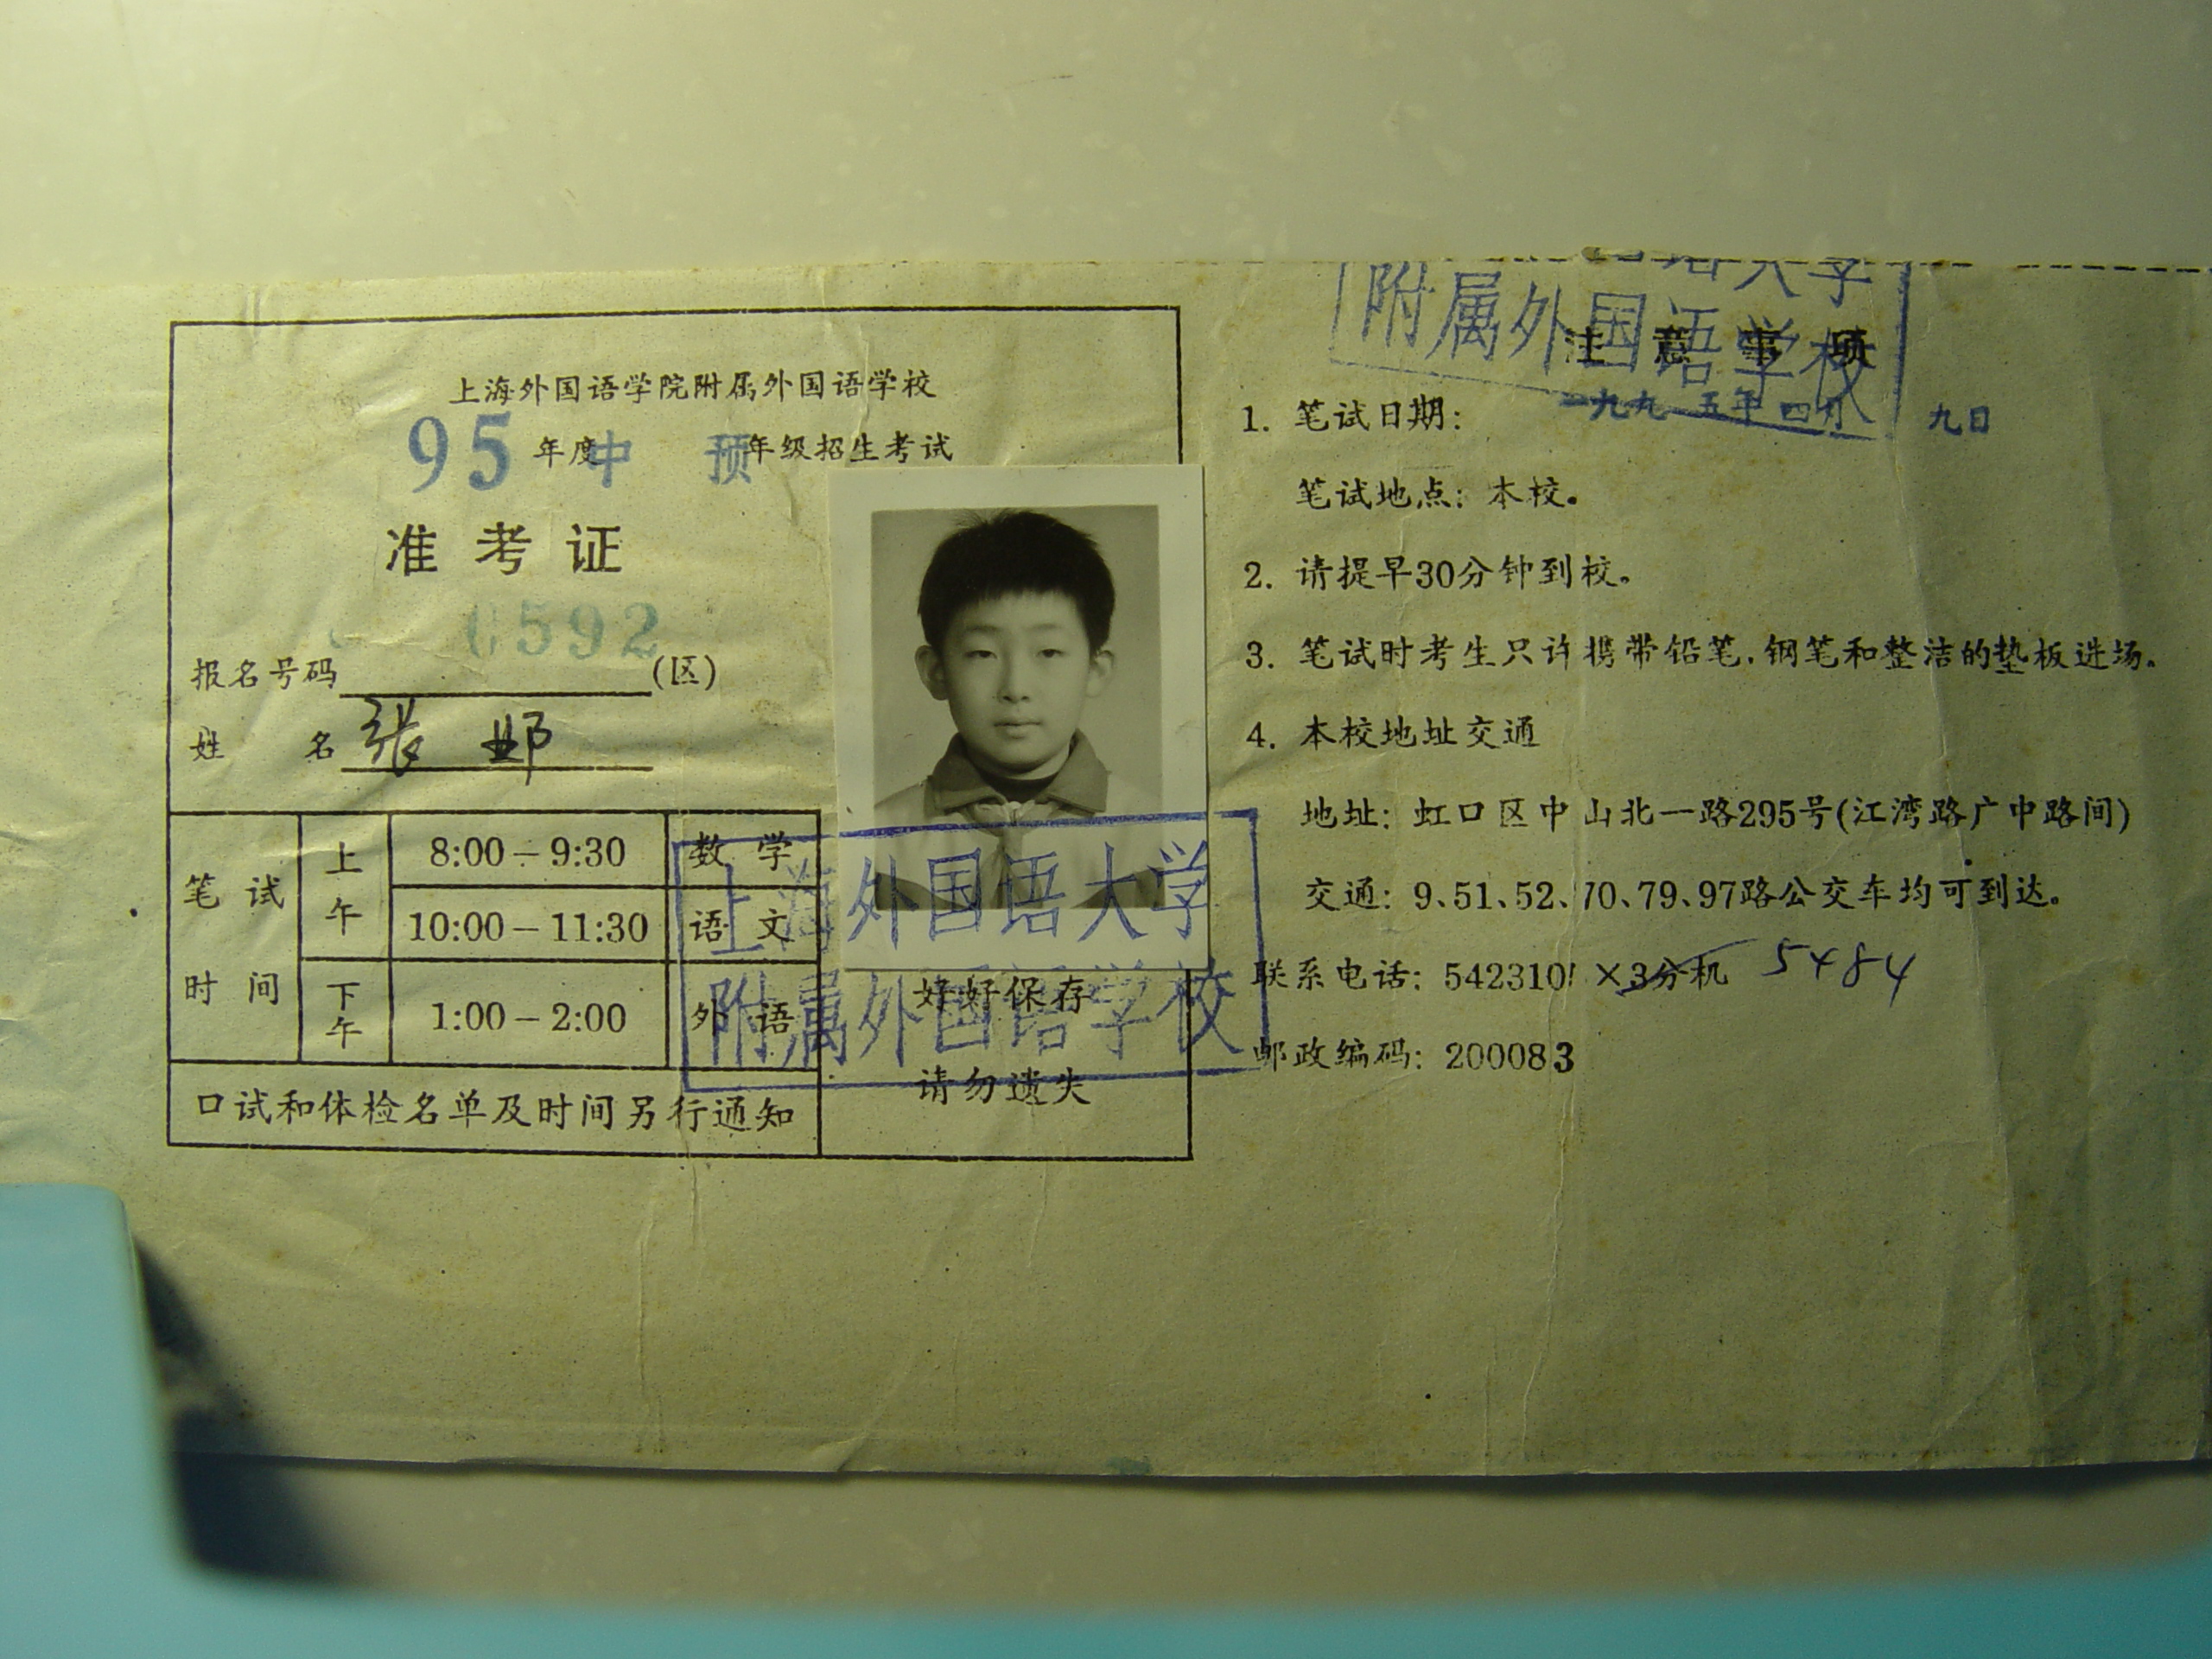 上海外国语学院附属外国语学校
95年度中 预年级招生考试
准考证
报名号码 0592 (区)
姓 名 张 邺
笔试时间
上午
8:00－9:30 数学
10:00－11:30 语文
下午
1:00－2:00 外语
口试和体检名单及时间另行通知
好好保存
请勿遗失
上海外国语大学
附属外国语学校
语大学
附属外国语学校
注意事项
1. 笔试日期: 一九九五年四月 九日
笔试地点: 本校。
2. 请提早30分钟到校。
3. 笔试时考生只许携带铅笔,钢笔和整洁的垫板进场。
4. 本校地址交通
地址: 虹口区中山北一路295号(江湾路广中路间)
交通: 9、51、52、70、79、97路公交车均可到达。
联系电话: 5423101×3分机 5484
邮政编码: 200083